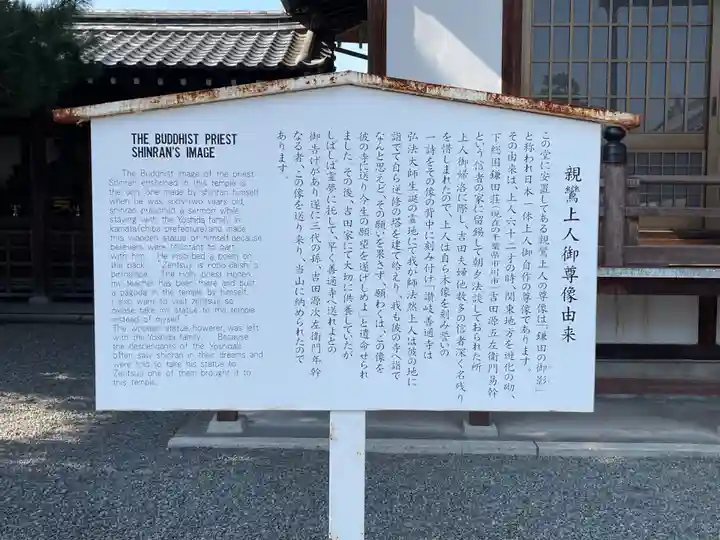 THE BUDDHIST PRIEST
SHINRAN'S IMAGE
The Buddhist image of the priest
Shinran enshrined in this temple is
the very one made by shinran himself
when he was sixty-two years old,
shinran preached a sermon while
staying with the Yoshida family in
kamata(chiba prefecture) and made
this wooden statue of himself because
believers were reluctant to part
with him. He inscribed a poem on
the back. "Zentsuji is
birthplace. The holy priest Honen
my teacher has been there and built
a pagoda in the temple by himself.
I also want to visit Zentsuji, so
please take my statue to the temple
instead of myself."
The wooden statue, however, was left
with the Yoshida family. Because
the descendants of the Yoshidas
often saw shinran in their dreams and
were told to take his statue to
Zentsuji, one of them brought it to
this temple.
親鸞上人御尊像由来
この堂に安置してある親鸞上人の尊像は「鎌田の御影」
と称われ日本一体上人御自作の尊像であります。
その由来は、上人六十二才の時、関東地方を遊化の砌、
下総国鎌田荘(現在の千葉県市川市)吉田源五左衛門易幹
という信者の家に留錫して朝夕法談しておられた所
上人御帰洛に際し、吉田夫婦他数多の信者深く名残り
を惜しまれたので、上人は自ら木像を刻み誓いの
一詩をその像の背中に刻み付け「讃岐善通寺は
弘法大師生誕の霊地にて我が師法然上人は彼の地に
詣でて自ら逆修の塔を建て給えり、我も彼の寺へ詣で
なんと思えど、その願いを果さず、願わくは、この像を
彼の寺に送り今生の願望を遂げしめよ」と遺命せられ
ました。その後、吉田家にて大切に供養していたが
しばしば霊夢に托して、早く善通寺へ送れよとの
御告げがあり遂に三代の孫、吉田源次左衛門年幹
なる者、この像を送り来り、当山に納められたので
あります。